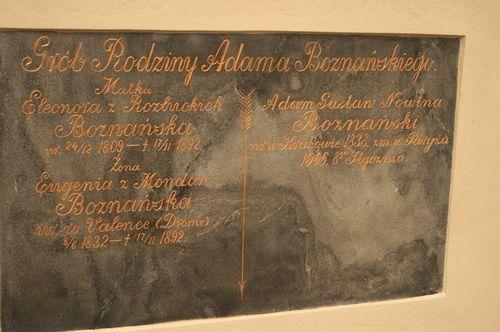 Grób Rodziny Adama Boznańskiego.
Matka
Eleonora z Rozbickich
Boznańska
ur. 24/12 1809 — † 17/II 1892.
Żona
Eugenia z Mondan
Boznańska
ur. w Valence (Drôme)
8/6 1832 — † 17/II 1892.
Adam Gustaw Nowina
Boznański
ur. w Krakowie 1836, zm. w Paryżu
1906. 8º Stycznia.